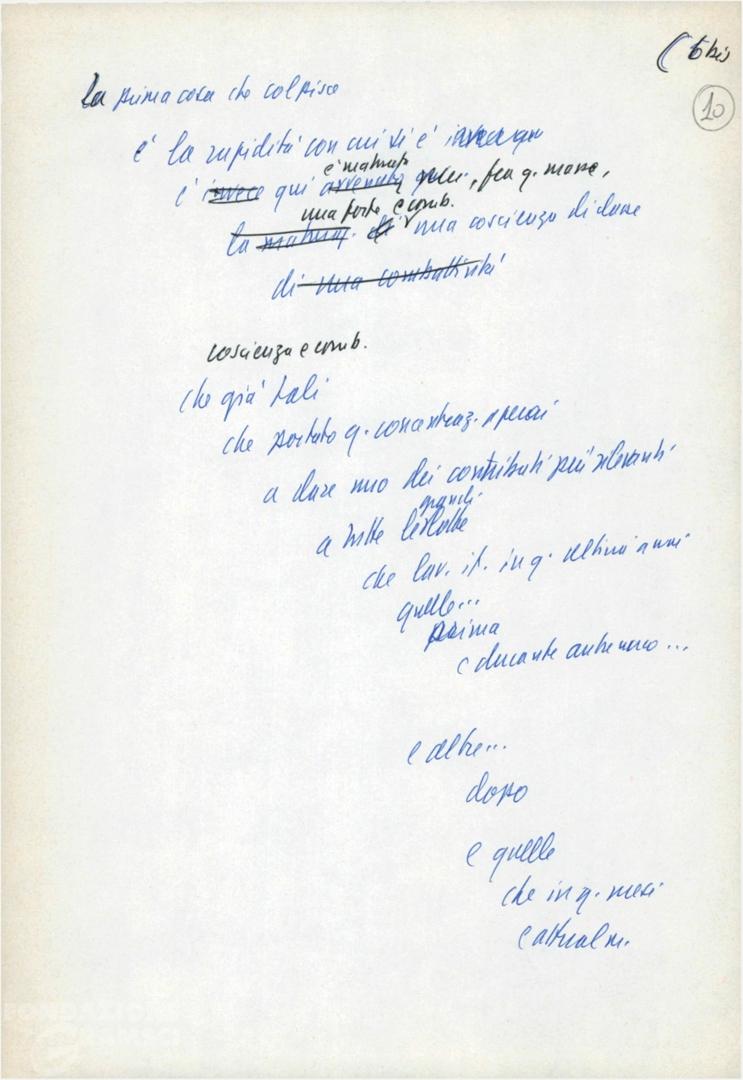 ( 6 bis
10
La prima cosa che colpisce
è la rapidità con cui si è
è maturata
è invece qui avvenuta, fra q. masse,
una forte e comb.
la maturaz. di una coscienza di classe
di una combattività
coscienza e comb.
che già tali
che portato q. concentraz. operai
a dare uno dei contributi più rilevanti
grandi
a tutte le lotte
che lav. it. in q. ultimi anni
quelle...
prima
e durante autunno...
e altre...
dopo
e quelle
che in q. mesi
e attualm.